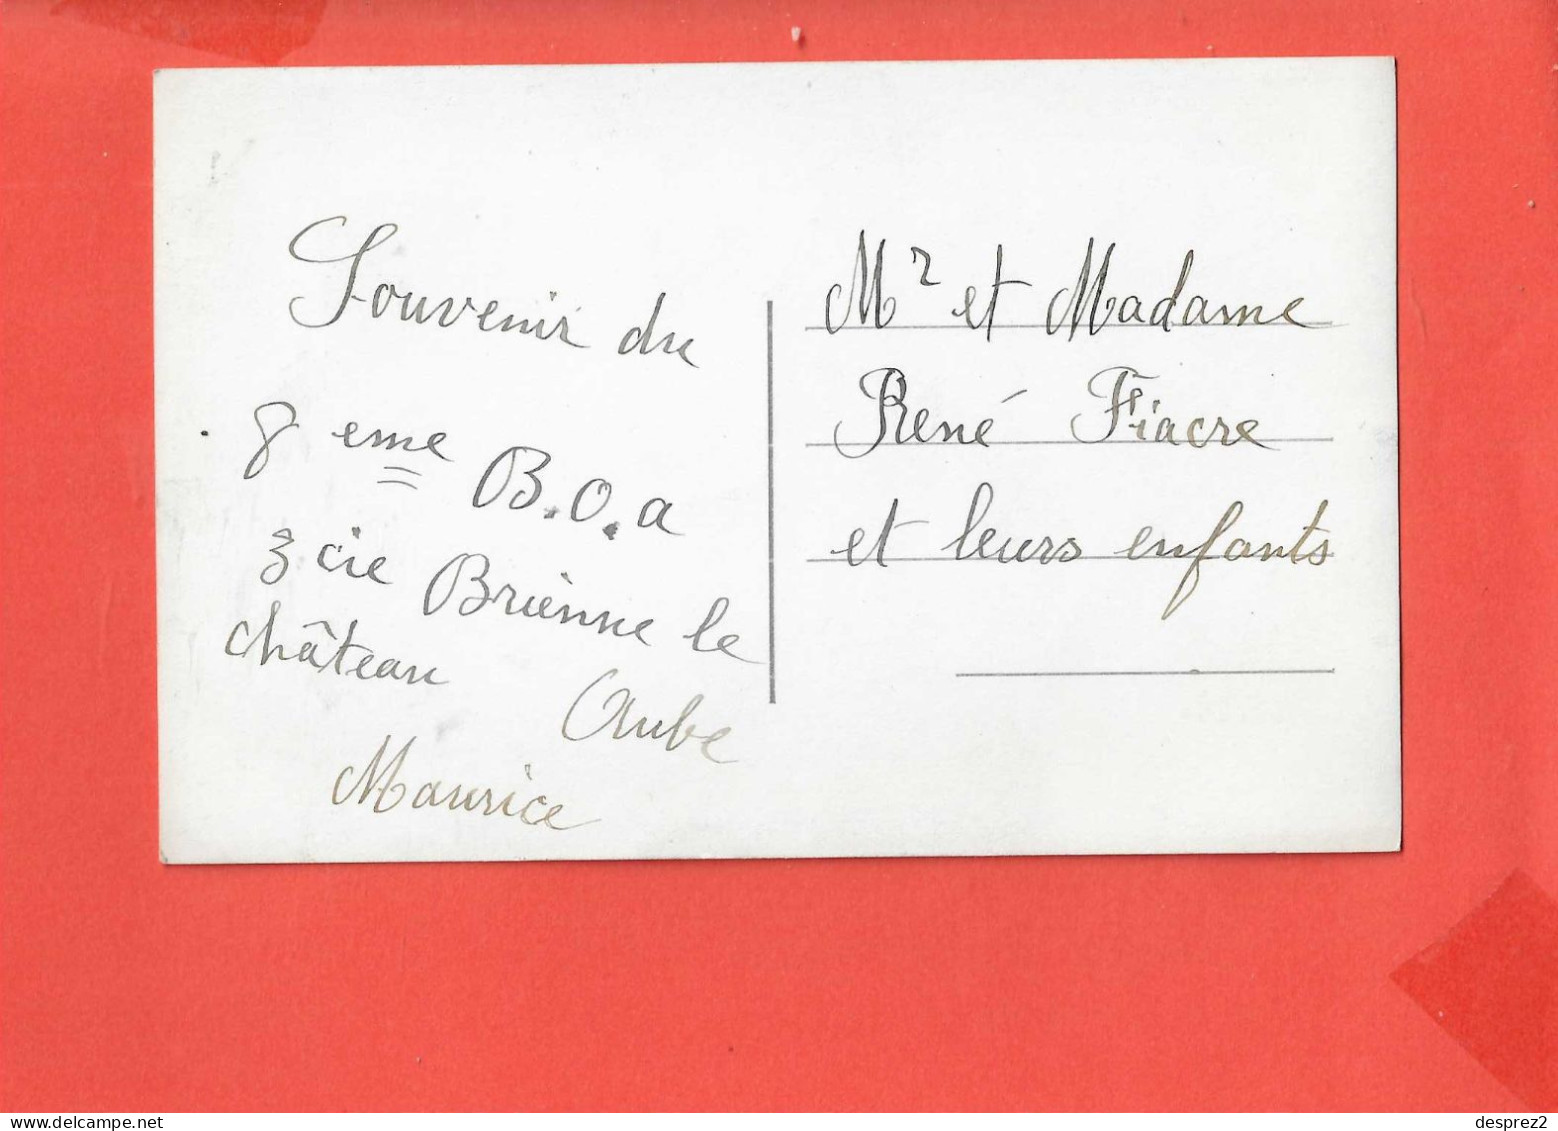 Souvenir du
8 eme B.O.a
3 cie Brienne le
château Aube
Maurice
Mr et Madame
René Fiacre
et leurs enfants
http://www.delcampe.net
desprez2